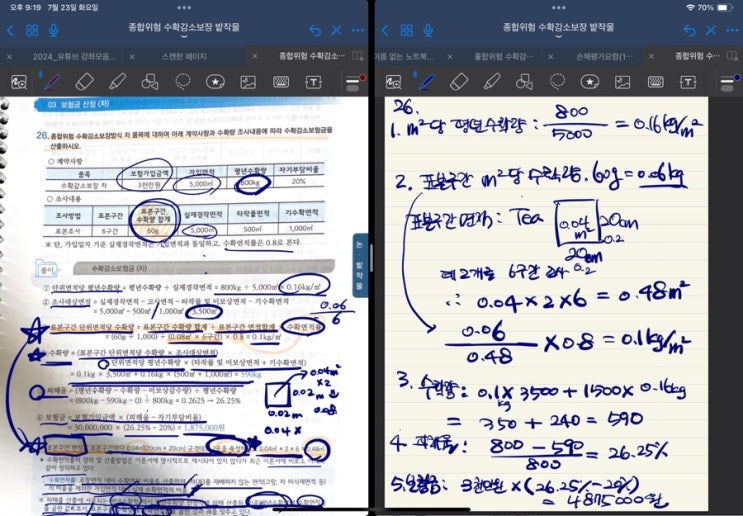 오후 9:19 7월 23일 화요일
70%
종합위험 수확감소보장 밭작물
2024_유튜브 강좌모음...
스캔한 페이지
종합위험 수확감소...
03 보험금 산정 (차)
26. 종합위험 수확감소보장방식 차 품목에 대하여 아래 계약사항과 수확량 조사내용에 따라 수확감소보험금을
산출하시오.
○ 계약사항
품목 보험가입금액 가입면적 평년수확량 자기부담비율
수확감소보장 차 3천만원 5,000㎡ 800kg 20%
○ 조사내용
조사방법 표본구간 표본구간 수확량 합계 실제경작면적 타작물면적 기수확면적
표본조사 6구간 60g 5,000㎡ 500㎡ 1,000㎡
※ 단, 가입일자 기준 실제경작면적은 가입면적과 동일하고, 수확면적율은 0.8로 본다.
풀이 수확감소보험금 (차)
① 단위면적당 평년수확량 = 평년수확량 ÷ 실제경작면적 = 800kg ÷ 5,000㎡ = 0.16kg/㎡
② 조사대상면적 = 실제경작면적 - 고사면적 - 타작물 및 미보상면적 - 기수확면적
= 5,000㎡ - 500㎡ - 1,000㎡ = 3,500㎡
0.06
6
③ 표본구간 단위면적당 수확량 = 표본구간 수확량 합계 ÷ 표본구간 면적합계 × 수확면적율
= (60g ÷ 1,000) ÷ (0.08㎡ × 6구간) × 0.8 = 0.1kg/㎡
④ 수확량 = (표본구간 단위면적당 수확량 × 조사대상면적)
+ {단위면적당 평년수확량 × (타작물 및 미보상면적 + 기수확면적)}
= 0.1kg × 3,500㎡ + 0.16kg × (500㎡ + 1,000㎡) = 590kg
⑤ 피해율 = (평년수확량 - 수확량 - 미보상감수량) ÷ 평년수확량
= (800kg - 590kg - 0) ÷ 800kg = 0.2625 → 26.25%
⑥ 보험금 = 보험가입금액 × (피해율 - 자기부담비율)
= 30,000,000 × (26.25% - 20%) = 1,875,000원
0.04㎡
×2
0.02m
0.02m
0.08
0.04 ×
본·밭작물
종합위험 수확감소보장 밭작물
이름 없는 노트북...
종합위험 수확감...
손해평가요령(1...
종합위험 수...
26.
1. ㎡당 평년수확량 : 800
5000
= 0.16kg/㎡
2. 표본구간 ㎡당 수확량. 60g = 0.06kg
표본구간 면적 : Tea 0.04㎡ 20cm
0.2
20cm
0.2
∴ 0.04 × 2 × 6 = 0.48㎡
0.06
0.48
× 0.8 = 0.1kg/㎡
3. 수확량 : 0.1kg × 3500 + 1500 × 0.16kg
= 350 + 240 = 590
4. 피해율 : 800 - 590
800
= 26.25%
5. 보험금 : 3천만원 × (26.25% - 20%)
= 1875000원